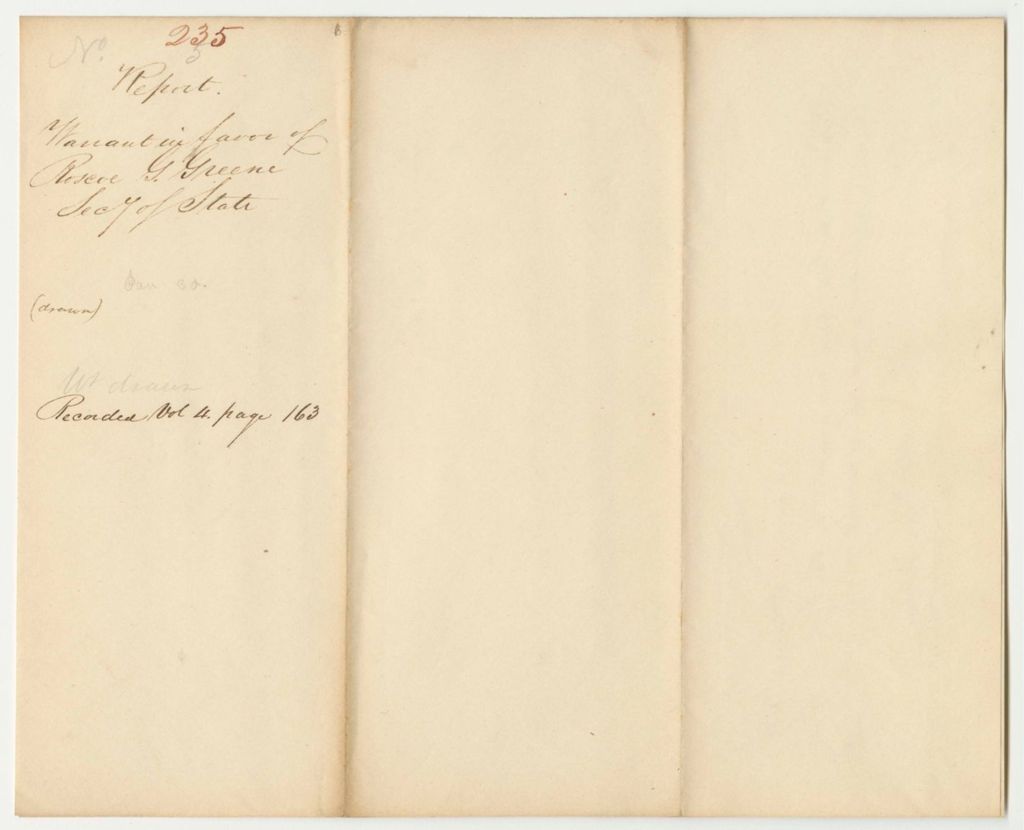 No. 235
3
Report.
Warrant in favor of
Roscoe G. Greene
Secy of State
Jan 30.
(drawn)
Wt drawn
Recorded Vol 4. page 163